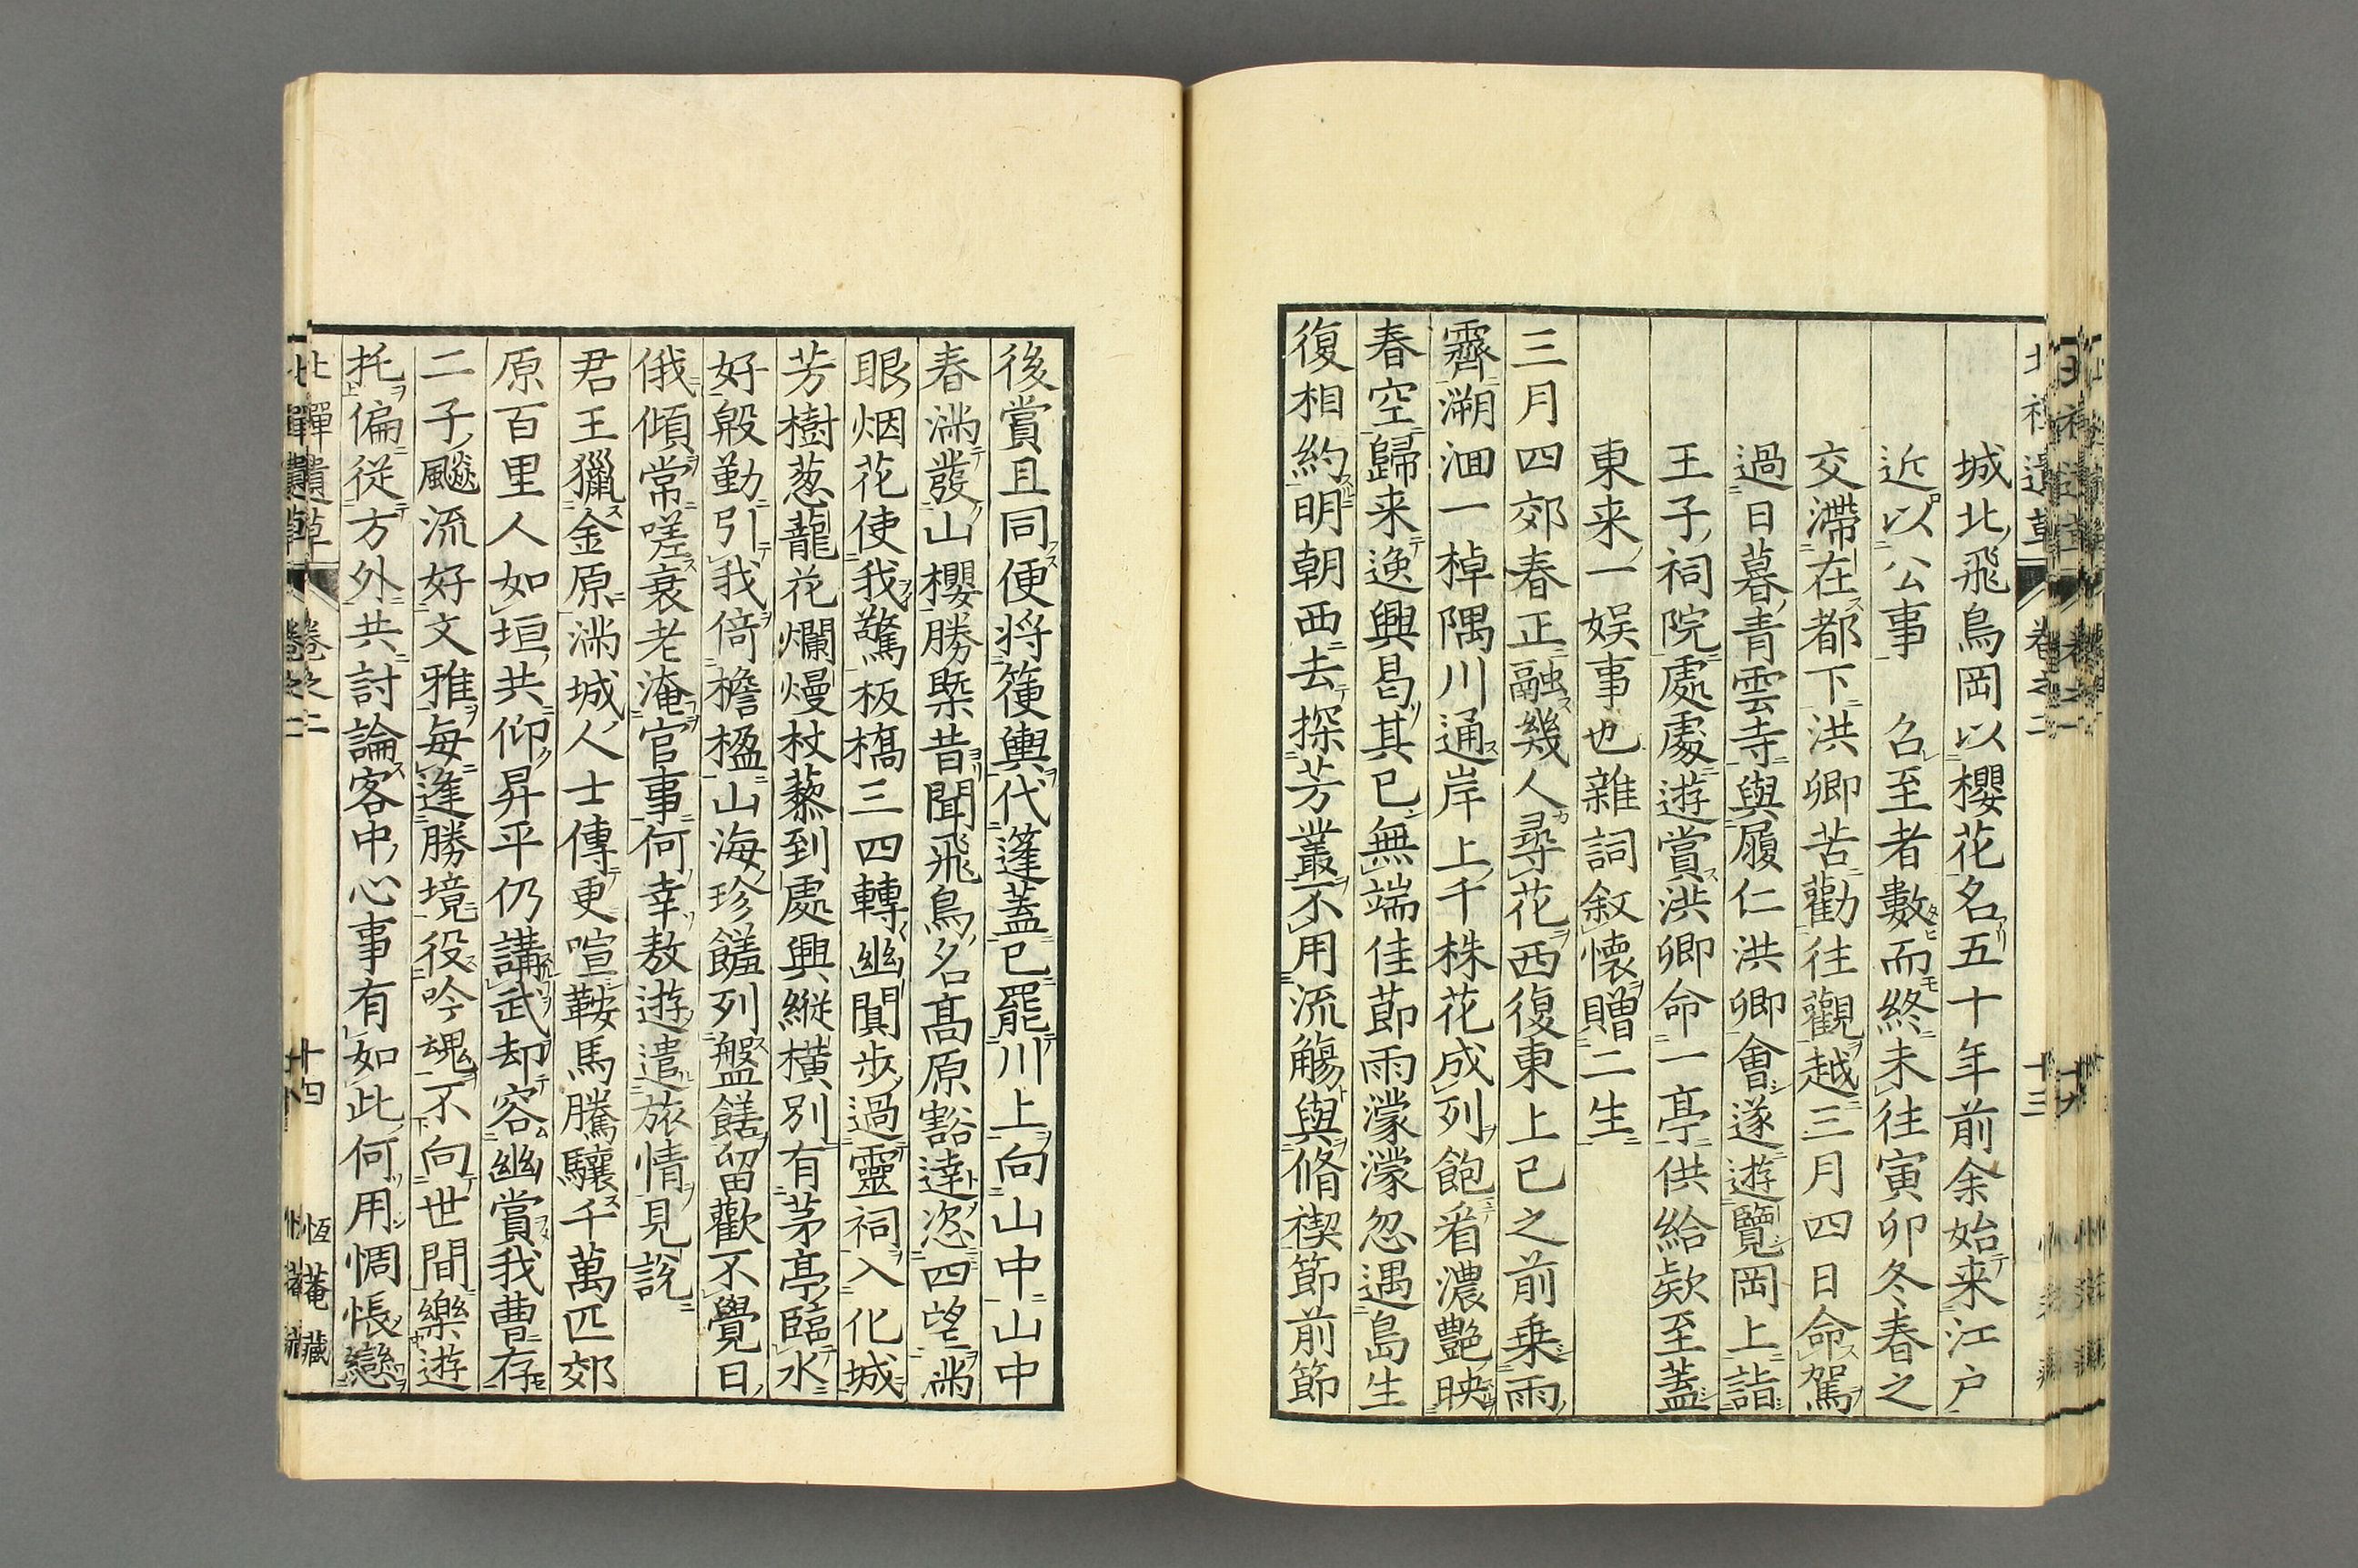 城北飛鳥岡以櫻花名五十年前余始来江戸
近以公事　召至者數而終未往寅卯冬春之
交滯在都下洪卿苦勸往觀越三月四日命駕
過日暮青雲寺與履仁洪卿會遂遊覽岡上詣
王子祠院處處遊賞洪卿命一亭供給欵至蓋
東来一娯事也雜詞敘懐贈二生
三月四郊春正融幾人尋花西復東上巳之前乗雨
霽溯洄一棹隅川通岸上千株花成列飽看濃艷映
春空歸来逸興曷其已無端佳節雨濛濛忽遇島生
復相約明朝西去探芳叢不用流觴與脩禊節前節
後賞且同便将箯輿代篷蓋已罷川上向山中山中
春滿發山櫻勝槩昔聞飛鳥名髙原豁達恣四望滿
眼烟花使我驚板橋三四轉幽闃歩過靈祠入化城
芳樹葱蘢花爛熳杖藜到處興縦横別有茅亭臨水
好殷勤引我倚檐楹山海珍饈列盤饍留歡不覺日
俄傾常嗟衰老淹官事何幸敖遊遣旅情見說
君王獵金原滿城人士傳更喧鞍馬騰驤千萬匹郊
原百里人如垣共仰昇平仍講武却容幽賞我曹存
二子飈流好文雅每逢勝境役吟魂不向世間樂遊
托偏従方外共討論客中心事有如此何用惆悵戀
北禪遺草
卷之二
十四
恆菴藏